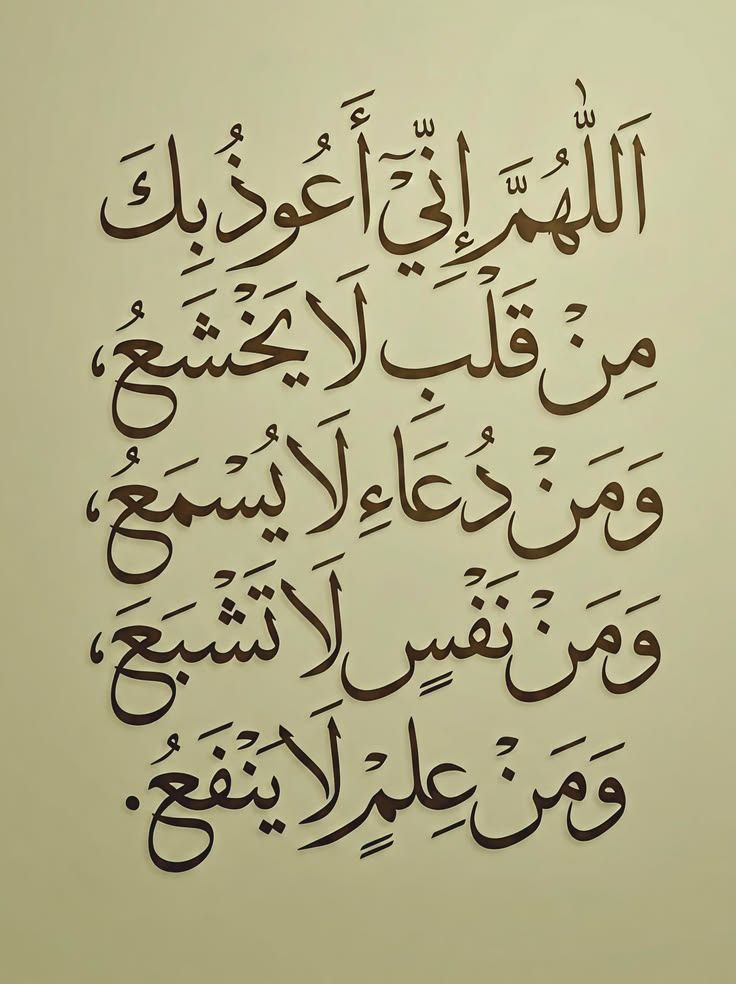 اَللّٰهُمَّ إِنِّيْٓ أَعُوذُ بِكَ
مِنْ قَلْبِ لَا يَخْشَعُ،
وَمَنْ دُعَاءِ لَا يُسْمَعُ،
وَمَنْ نَفْسٍ لَا تَشْبَعَ،
وَمَنْ عِلْمٍ لَا يَنْفَعُ.